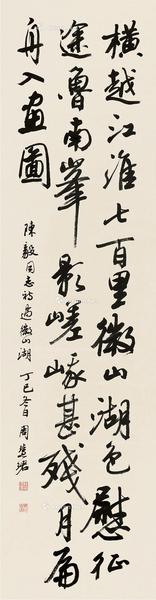 横越江淮七百里微山湖色慰征
途鲁南峯影嵯峨甚残月扁
舟入画圖
陳毅同志诗過微山湖 丁巳冬日 周慧珺